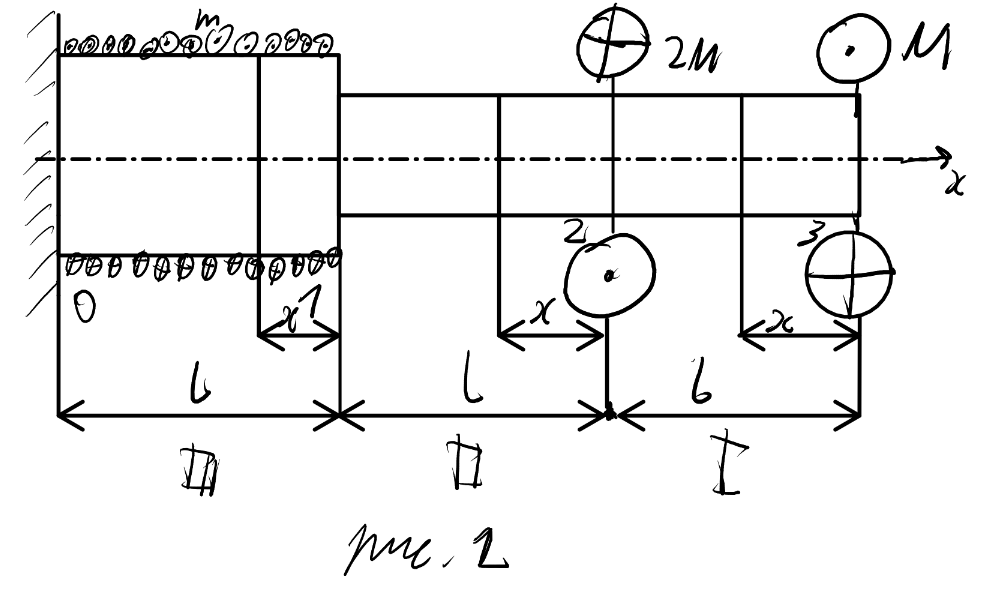 m
2M
M
x
2
3
0
1
x
x
x
l
l
l
III
II
I
рис. 2